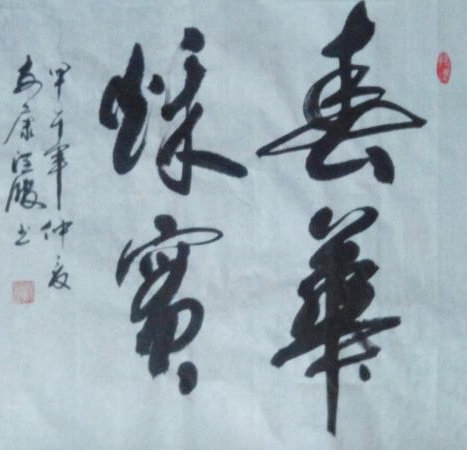 春華
秋實
甲午年仲夏
安康汪书